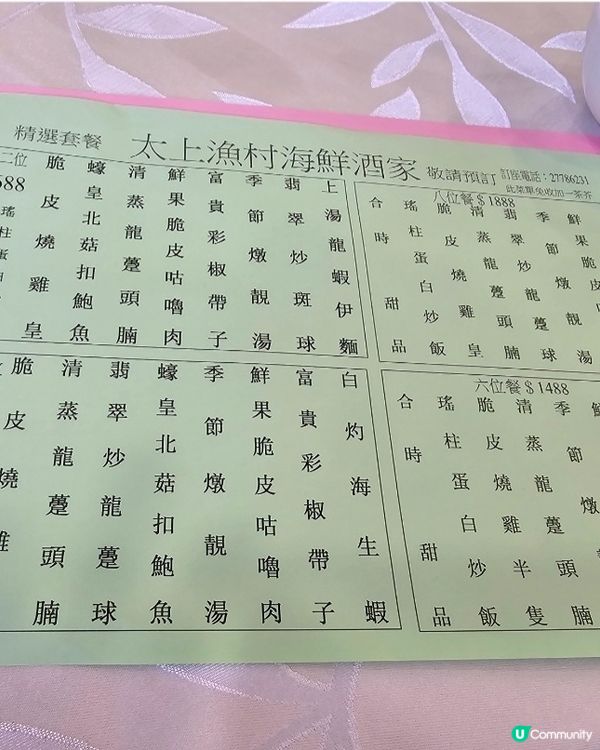 精選套餐
太上漁村海鮮酒家
敬請預訂
訂座電話:27786231
此菜單免收加一茶芥
二位
588
上湯龍蝦伊麵
翡翠炒斑球
季節燉靚湯
富貴彩椒帶子
鮮果脆皮咕嚕肉
清蒸龍躉頭腩
蠔皇北菇扣鮑魚
脆皮燒雞皇
八位餐$1888
鮮果皮
季節燉靚湯
翡翠炒龍躉球
清蒸龍躉頭腩
脆皮燒雞皇
瑤柱蛋白炒飯
合時甜品
白灼海生蝦
富貴彩椒帶子
鮮果脆皮咕嚕肉
季節燉靚湯
蠔皇北菇扣鮑魚
翡翠炒龍躉球
清蒸龍躉頭腩
脆皮燒雞
六位餐$1488
季節燉
清蒸龍躉頭腩
脆皮燒雞半隻
瑤柱蛋白炒飯
合時甜品
U Community